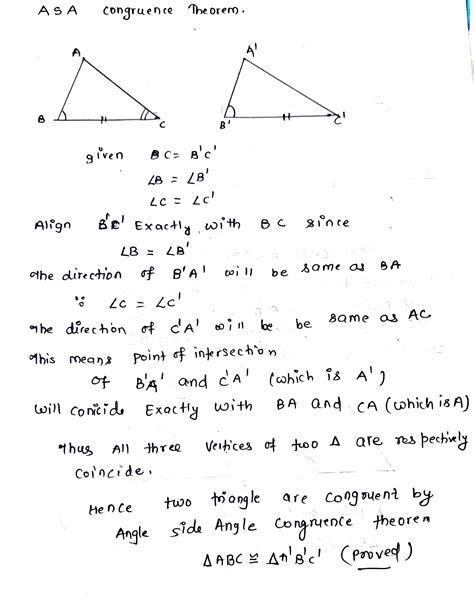 ASA Congruence Theorem.
A A'
B C B' C'
given BC = B'C'
∠B = ∠B'
∠C = ∠C'
Align B'C' Exactly with BC since
∠B = ∠B'
The direction of B'A' will be same as BA
∵ ∠C = ∠C'
The direction of C'A' will be be same as AC
This means point of intersection
of B'A' and C'A' (which is A')
will conicide Exactly with BA and CA (which is A)
Thus All three vertices of two Δ are respectively
coincide.
Hence two triangle are congruent by
Angle side Angle Congruence theorem
ΔABC ≅ ΔA'B'C' (Proved)